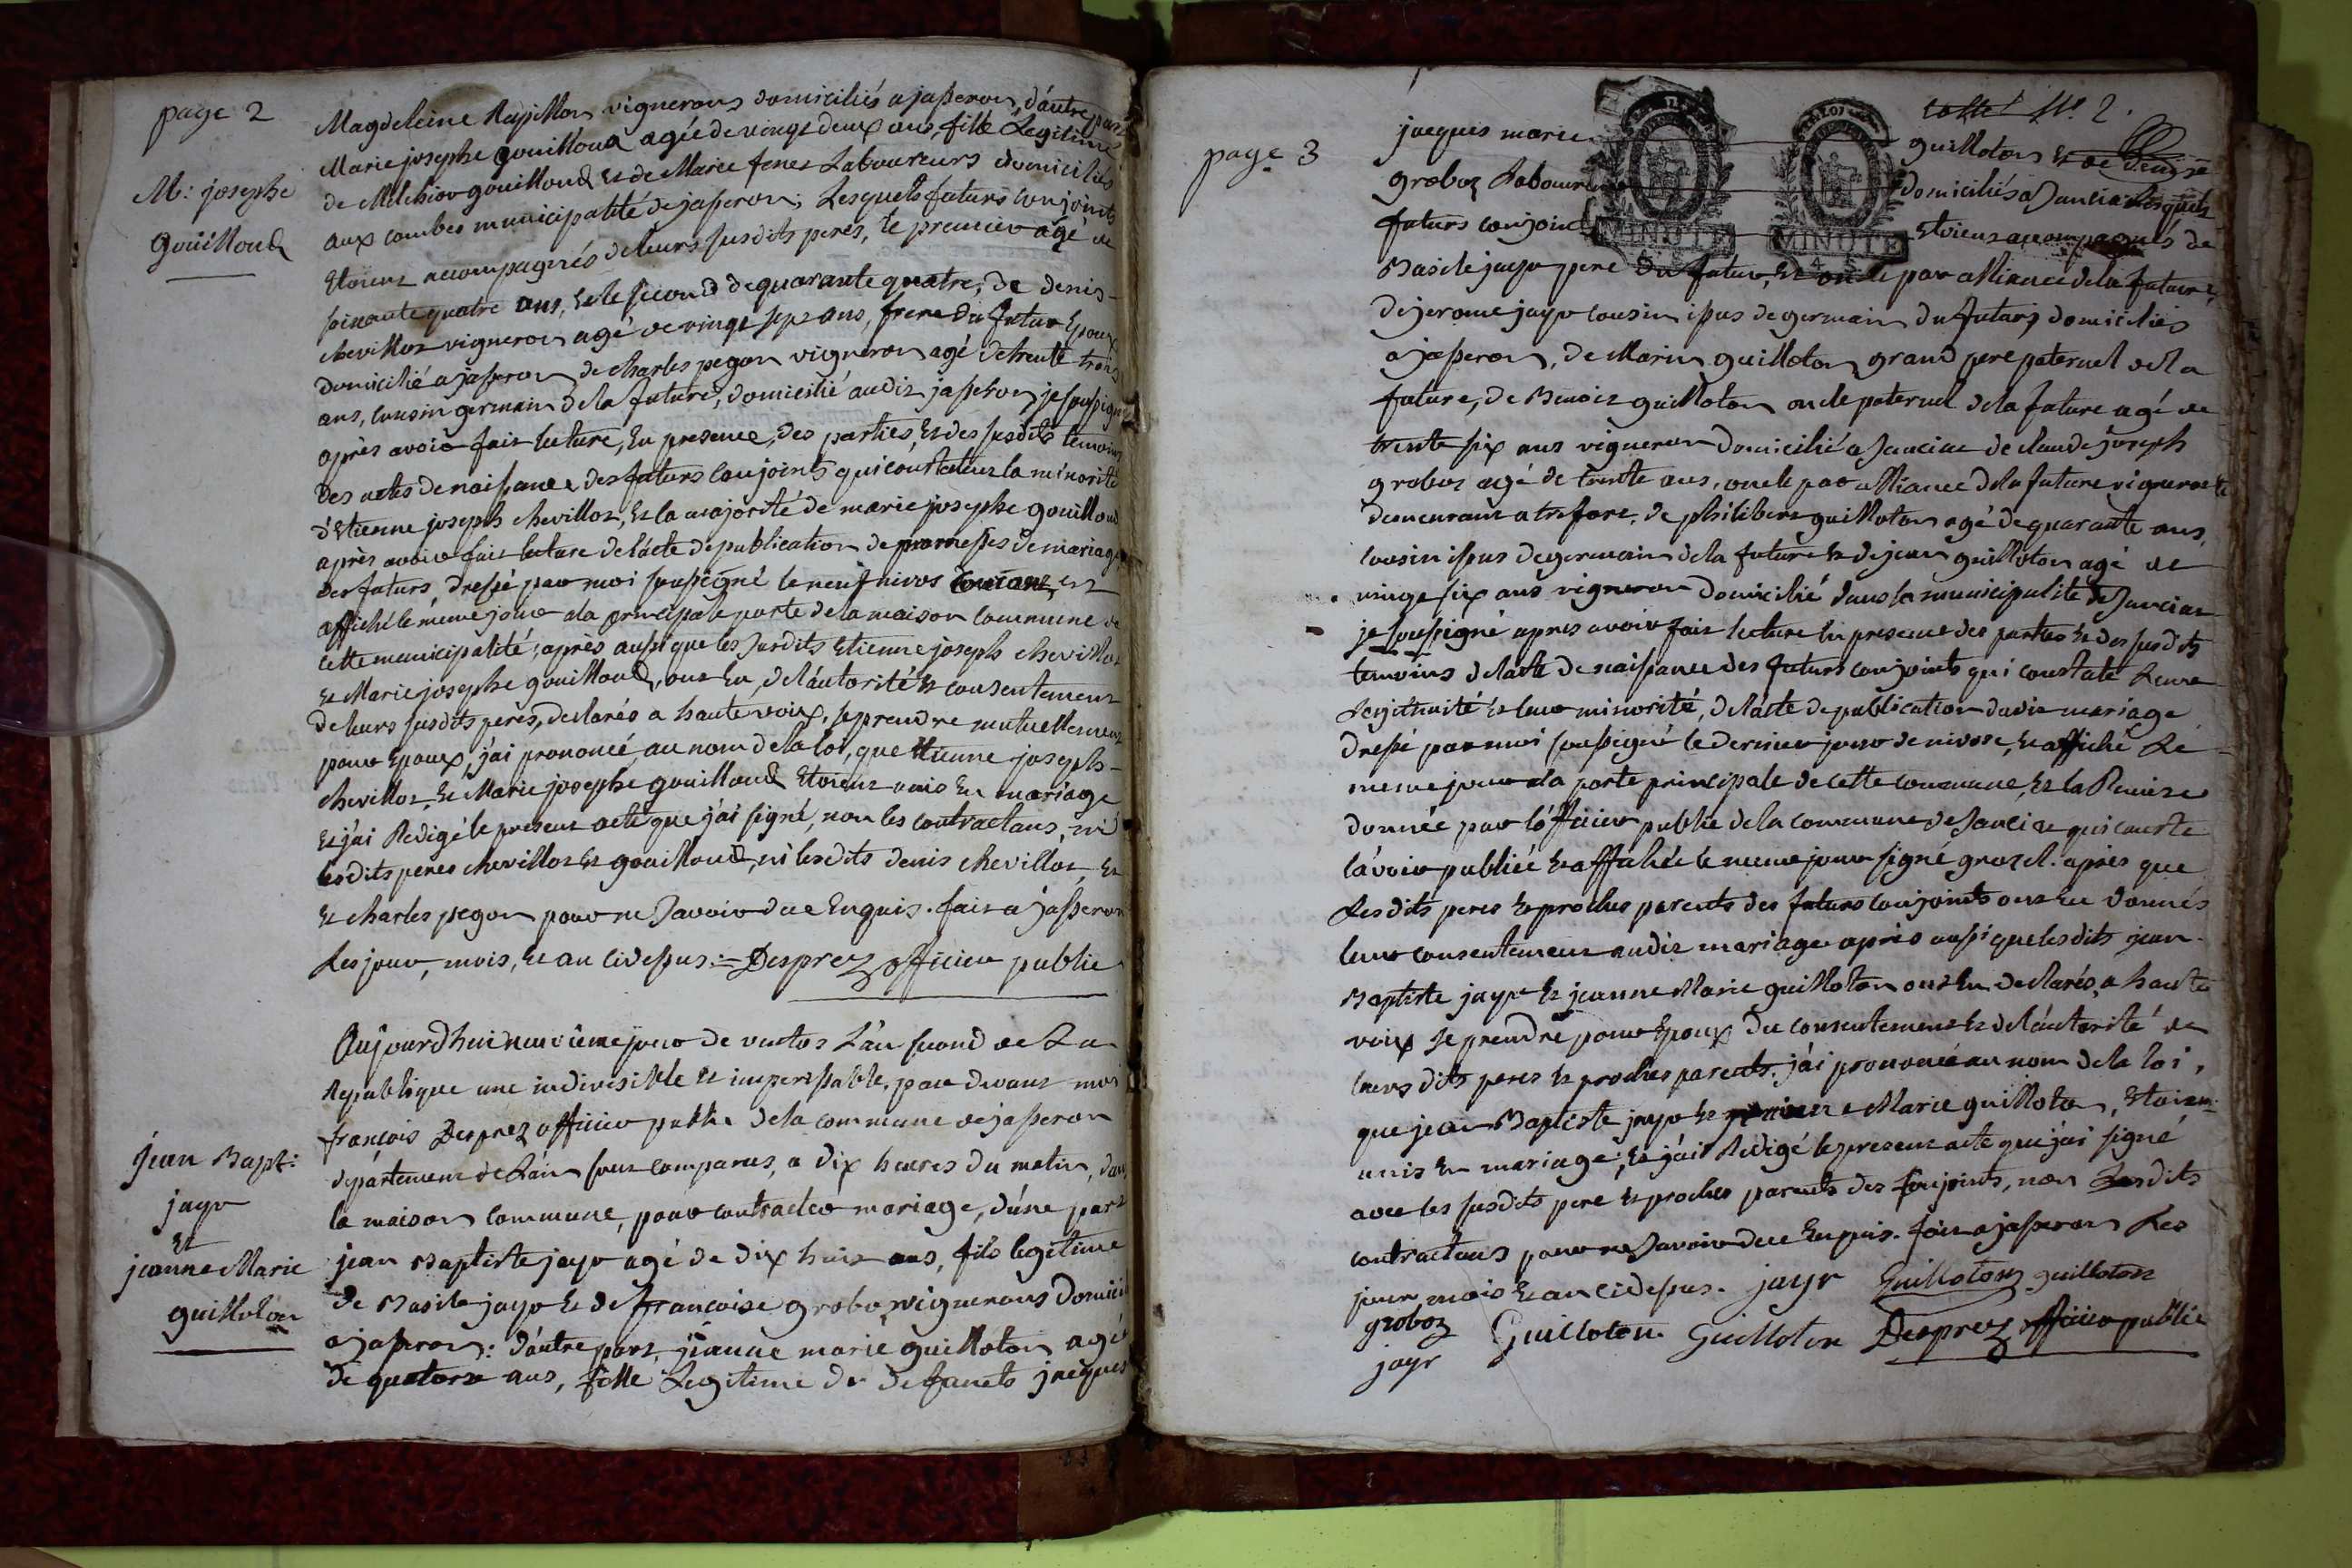 page 2
M: josephe
Gouilloud
Magdeleine Rapillon vignerons domiciliés a jasseron, d'autre part
Marie josephe gouilloud agée de vingt deux ans, fille Legitime
de Melchior gouilloud et de Marie fenet Laboureurs domiciliés
aux combes municipalité de jasseron; Lesquels futurs conjoints
Etoient accompagnés de leurs susdits peres, le premier agé de
soixante quatre ans, et le second de quarante quatre, de denis
chevillot vigneron agé de vingt sept ans, frere du futur Epoux
domicilié a jasseron de charles pegon vigneron agé de trente trois
ans, cousin germain de la future, domicilié audit jasseron, je soussigné
après avoir fait lecture, en presence des parties, et des susdits temoins
des actes de naissance des futurs conjoints qui constatent la minorité
d'Etienne joseph chevillot, et la majorité de marie josephe gouilloud
après avoir fait lecture de l'acte de publication de promesses de mariage
des futurs, dressé par moi soussigné le neuf nivos et
affiché le même jour a la principale porte de la maison commune de
cette municipalité; après aussi que les susdits Etienne joseph chevillot
et Marie josephe gouilloud, ont eu, de l'autorité et consentement
de leurs susdits peres, declarés a haute voix, se prendre mutuellement
pour Epoux, j'ai prononcé au nom de la loi, que Etienne joseph
chevillot, et Marie josephe gouilloud Etoient unis en mariage
et j'ai Redigé le present acte que j'ai signé, non les contractans, ni
lesdits peres chevillot et gouilloud, ni lesdits denis chevillot, et
et charles pegon pour ne savoir de ce Enquis. fait a jasseron
Les jour, mois, et an cidessus = Desprez officier public
jean Bapt:
jayr
Et
jeanne Marie
guilloton
Aujourdhui neuvième jour de vantos L'an second de La
Republique une indivisible et imperissable, par devant moi
françois Desprez officier public de la commune de jasseron
département de L'ain sont comparus, a dix heures du matin, dans
la maison commune, pour contracter mariage, d'une part
jean Baptiste jayr agé de dix huit ans, fils legitime
de Basile jayr et de françoise groboz vignerons Domicil
a jasseron: d'autre part, jeanne marie guilloton agé
de quatorze ans, fille Legitime de defunets jacques
page 3
cotté N° 2.
jacques marie guilloton et de Denise
groboz Labour domiciliés a Janciat Lesquels
futurs conjoint Etoient accompagnés de
MINUTE MINUTE
Basile jayr pere du futur, et oncle par alliance de la future,
de jerome jayr cousin issus de germain du futur, domiciliés
a jasseron, de Marin guilloton grand pere paternel de la
future, de Benoit guilloton oncle paternel de la future agé de
trente six ans vigneron domicilié a Janciat de claude joseph
groboz agé de trente ans, oncle par alliance de la future vigneron
demeurant a treffort, de philibert guilloton agé de quarante ans,
cousin issus de germain de la future et de jean guilloton agé de
vingt six ans vigneron domicilié dans la municipalité de Janciat
je soussigné apres avoir fait lecture en presence des parties et des susdits
temoins de l'acte de naissance des futurs conjoints qui constate Leur
Legitimité et leur minorité, de l'acte de publication dudit mariage
dressé par moi soussigné le dernier jour de nivose, et affiché Le
meme jour a la porte principale de cette commune, et la Remise
donnée par l'officier public de la commune de Janciat qui conste
l'avoir publiée et affichée le meme jour signé après que
Lesdits peres et proches parents des futurs conjoints ont eu donnés
leur consentement audit mariage après aussi que lesdits jean
Baptiste jayr et jeanne Marie guilloton ont eu declarés, a haute
voix se prendre pour Epoux du consentement et de l'autorité de
leurs dits peres et proches parents. j'ai prononcé au nom de la loi,
que jean Baptiste jayr et Marie guilloton, Etoient
unis en mariage; et j'ai Redigé le present acte que j'ai signé
avec les susdits pere et proches parents des conjoints, non Lesdits
contractans pour ne savoir de ce Enquis. fait a jasseron Les
jour mois et an cidessus. jayr Guilloton guilloton
groboz Guilloton Guilloton Desprez officier public
jayr